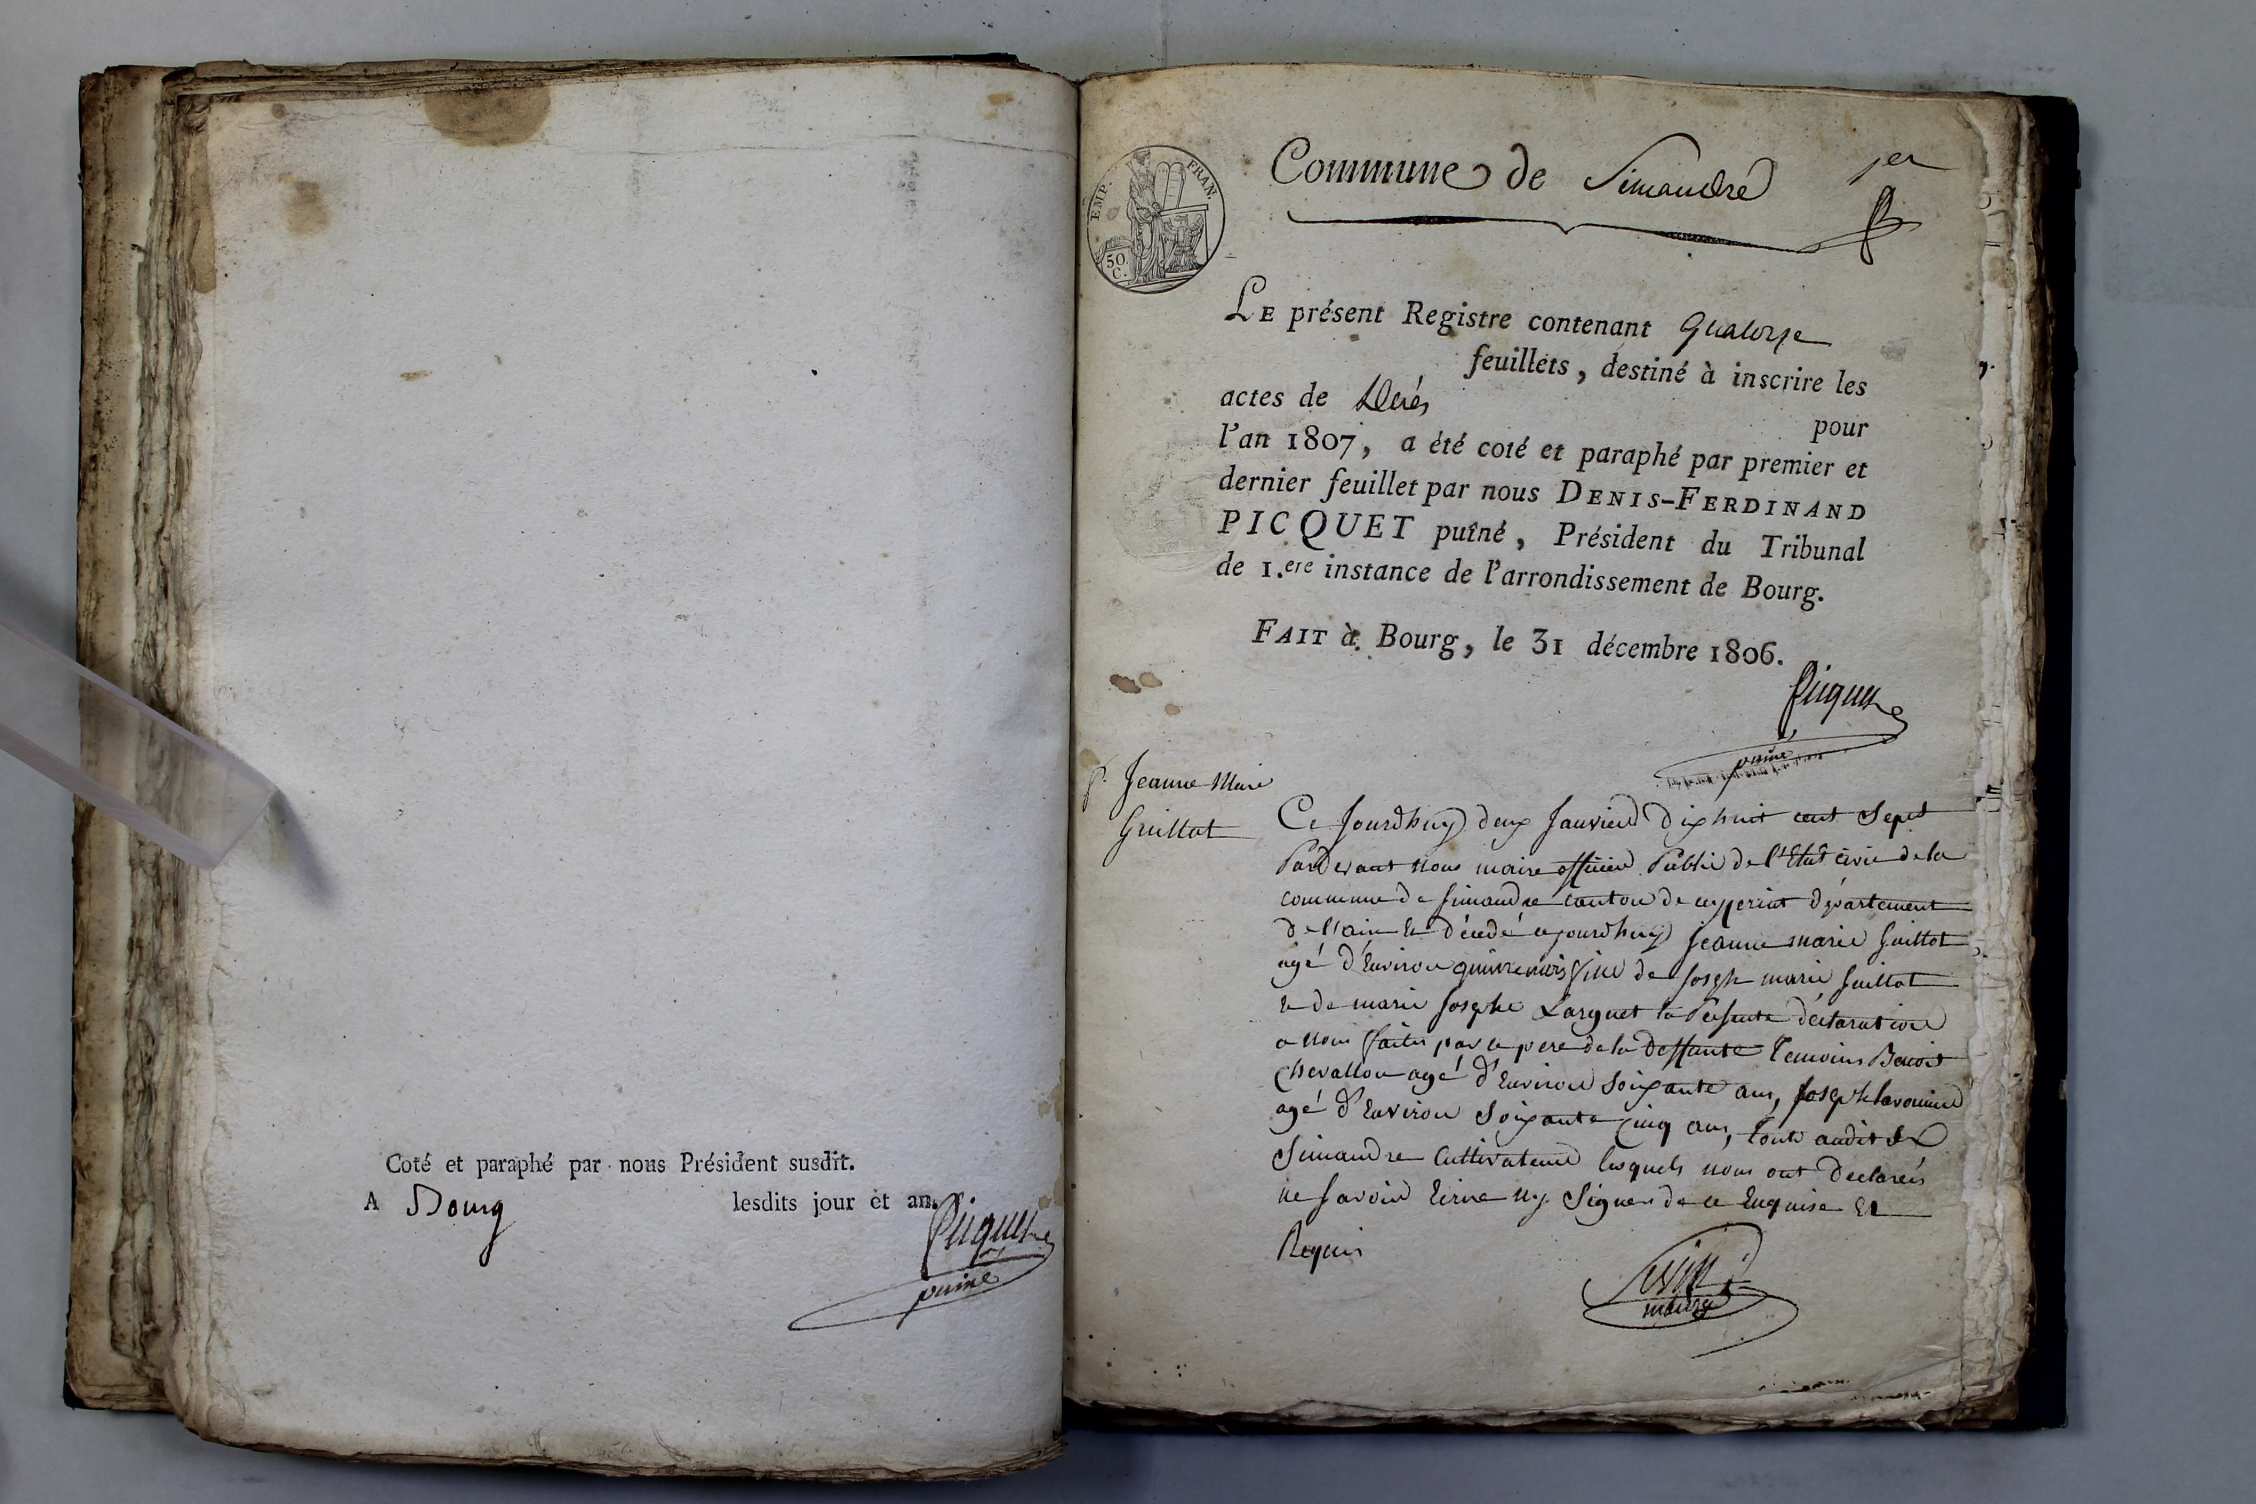 Coté et paraphé par nous Président susdit.
A Bourg lesdits jour et an.
Picquet
puiné
EMP. FRAN.
50
C.
Commune de Simandre 1er
LE présent Registre contenant Quatorze
feuillets, destiné à inscrire les
actes de Décès pour
l'an 1807, a été coté et paraphé par premier et
dernier feuillet par nous DENIS-FERDINAND
PICQUET puîné, Président du Tribunal
de 1.ere instance de l'arrondissement de Bourg.
FAIT à Bourg, le 31 décembre 1806.
Picquet
puiné
Jeanne Marie
Guillot
Ce Jourdhuy deux Janvier Dix huit cent Sept
Pardevant nous maire officier Public de l'Etat civil de la
commune de Simandre canton de ceyzeriat département
de l'ain Est décédé cejourdhuy Jeanne marie Guillot
agé d'Environ quinze mois fille de Joseph marie Guillot
et de marie Josephe Larguet la Présente déclaration
a nous faites par le pere de la deffante Temoins Benoit
Chevallon agé d'Environ Soixante ans, Joseph
agé d'Environ Soixante Cinq ans, touts audit
Simandre Cultivateurs lesquels nous ont Declarés
ne Savoir Ecrire ny Signer de ce Enquise Et
Requis
maire